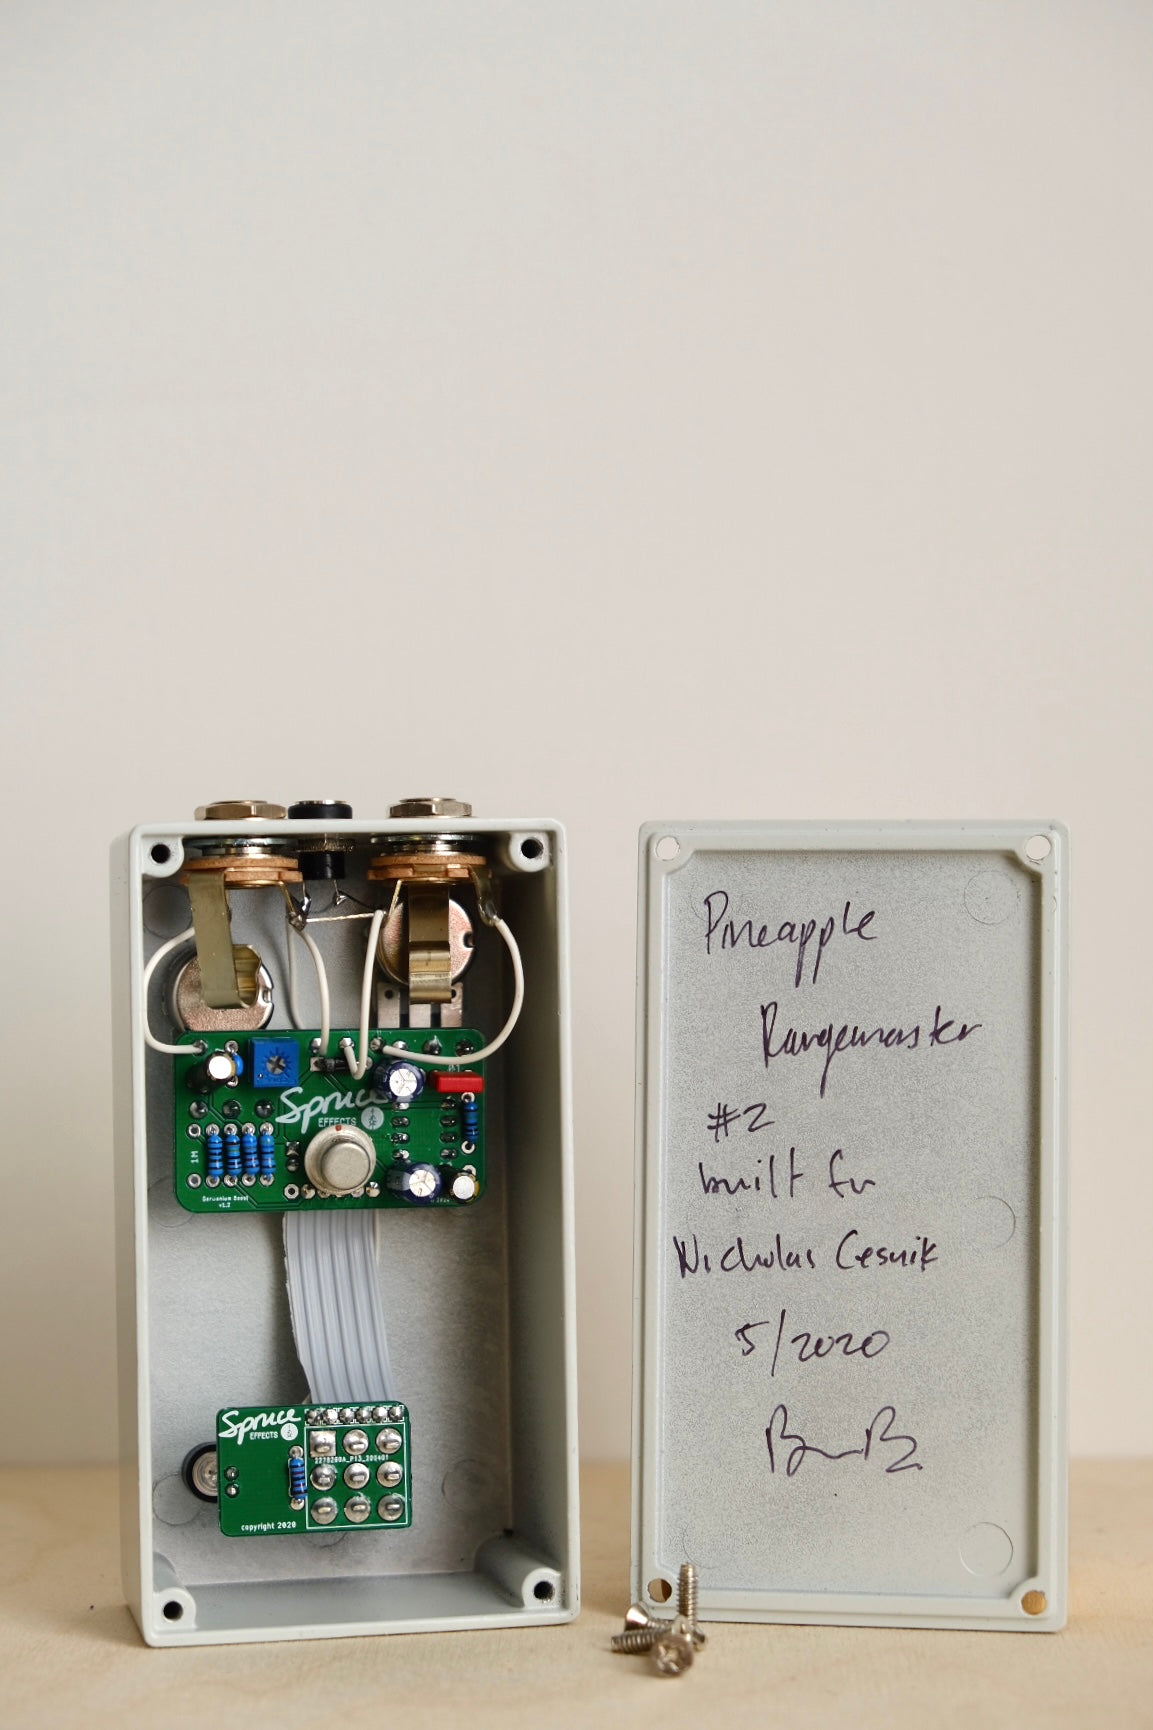 Spruce
EFFECTS
1M
Germanium Boost
v1.2
Spruce
EFFECTS
2278260A_P13_200401
copyright 2020
Pineapple
Rangemaster
#2
built for
Nicholas Cesnik
5/2020